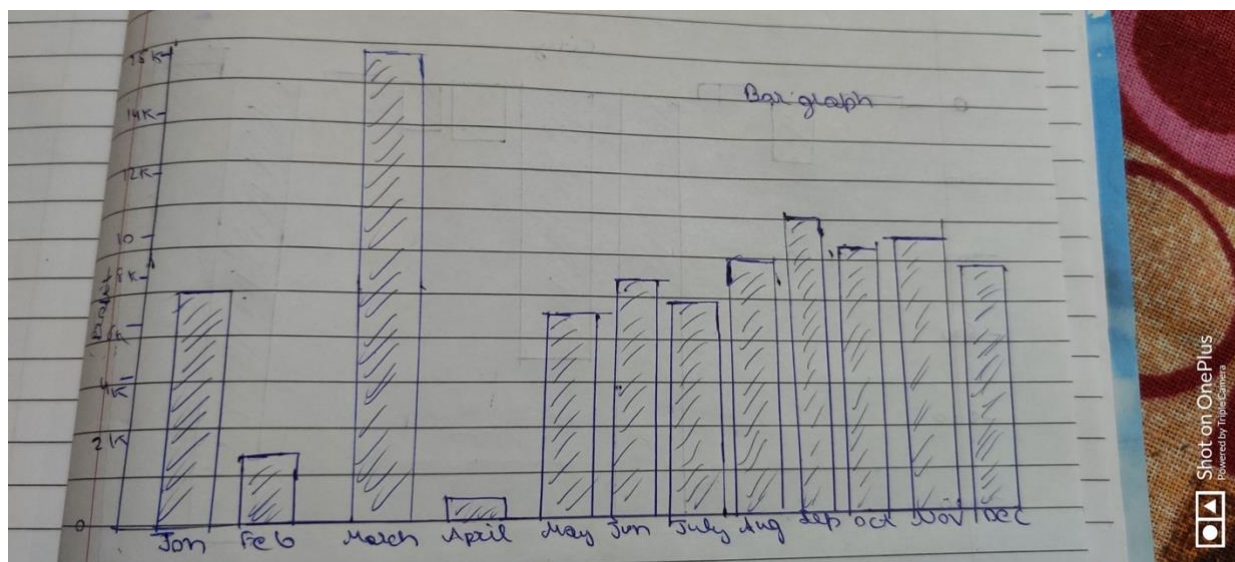 Bar graph
15K
14K
12K
10
8K
2K
0
Jan Feb March April May Jun July Aug Sep Oct Nov Dec
Shot on OnePlus
Powered by Triple Camera